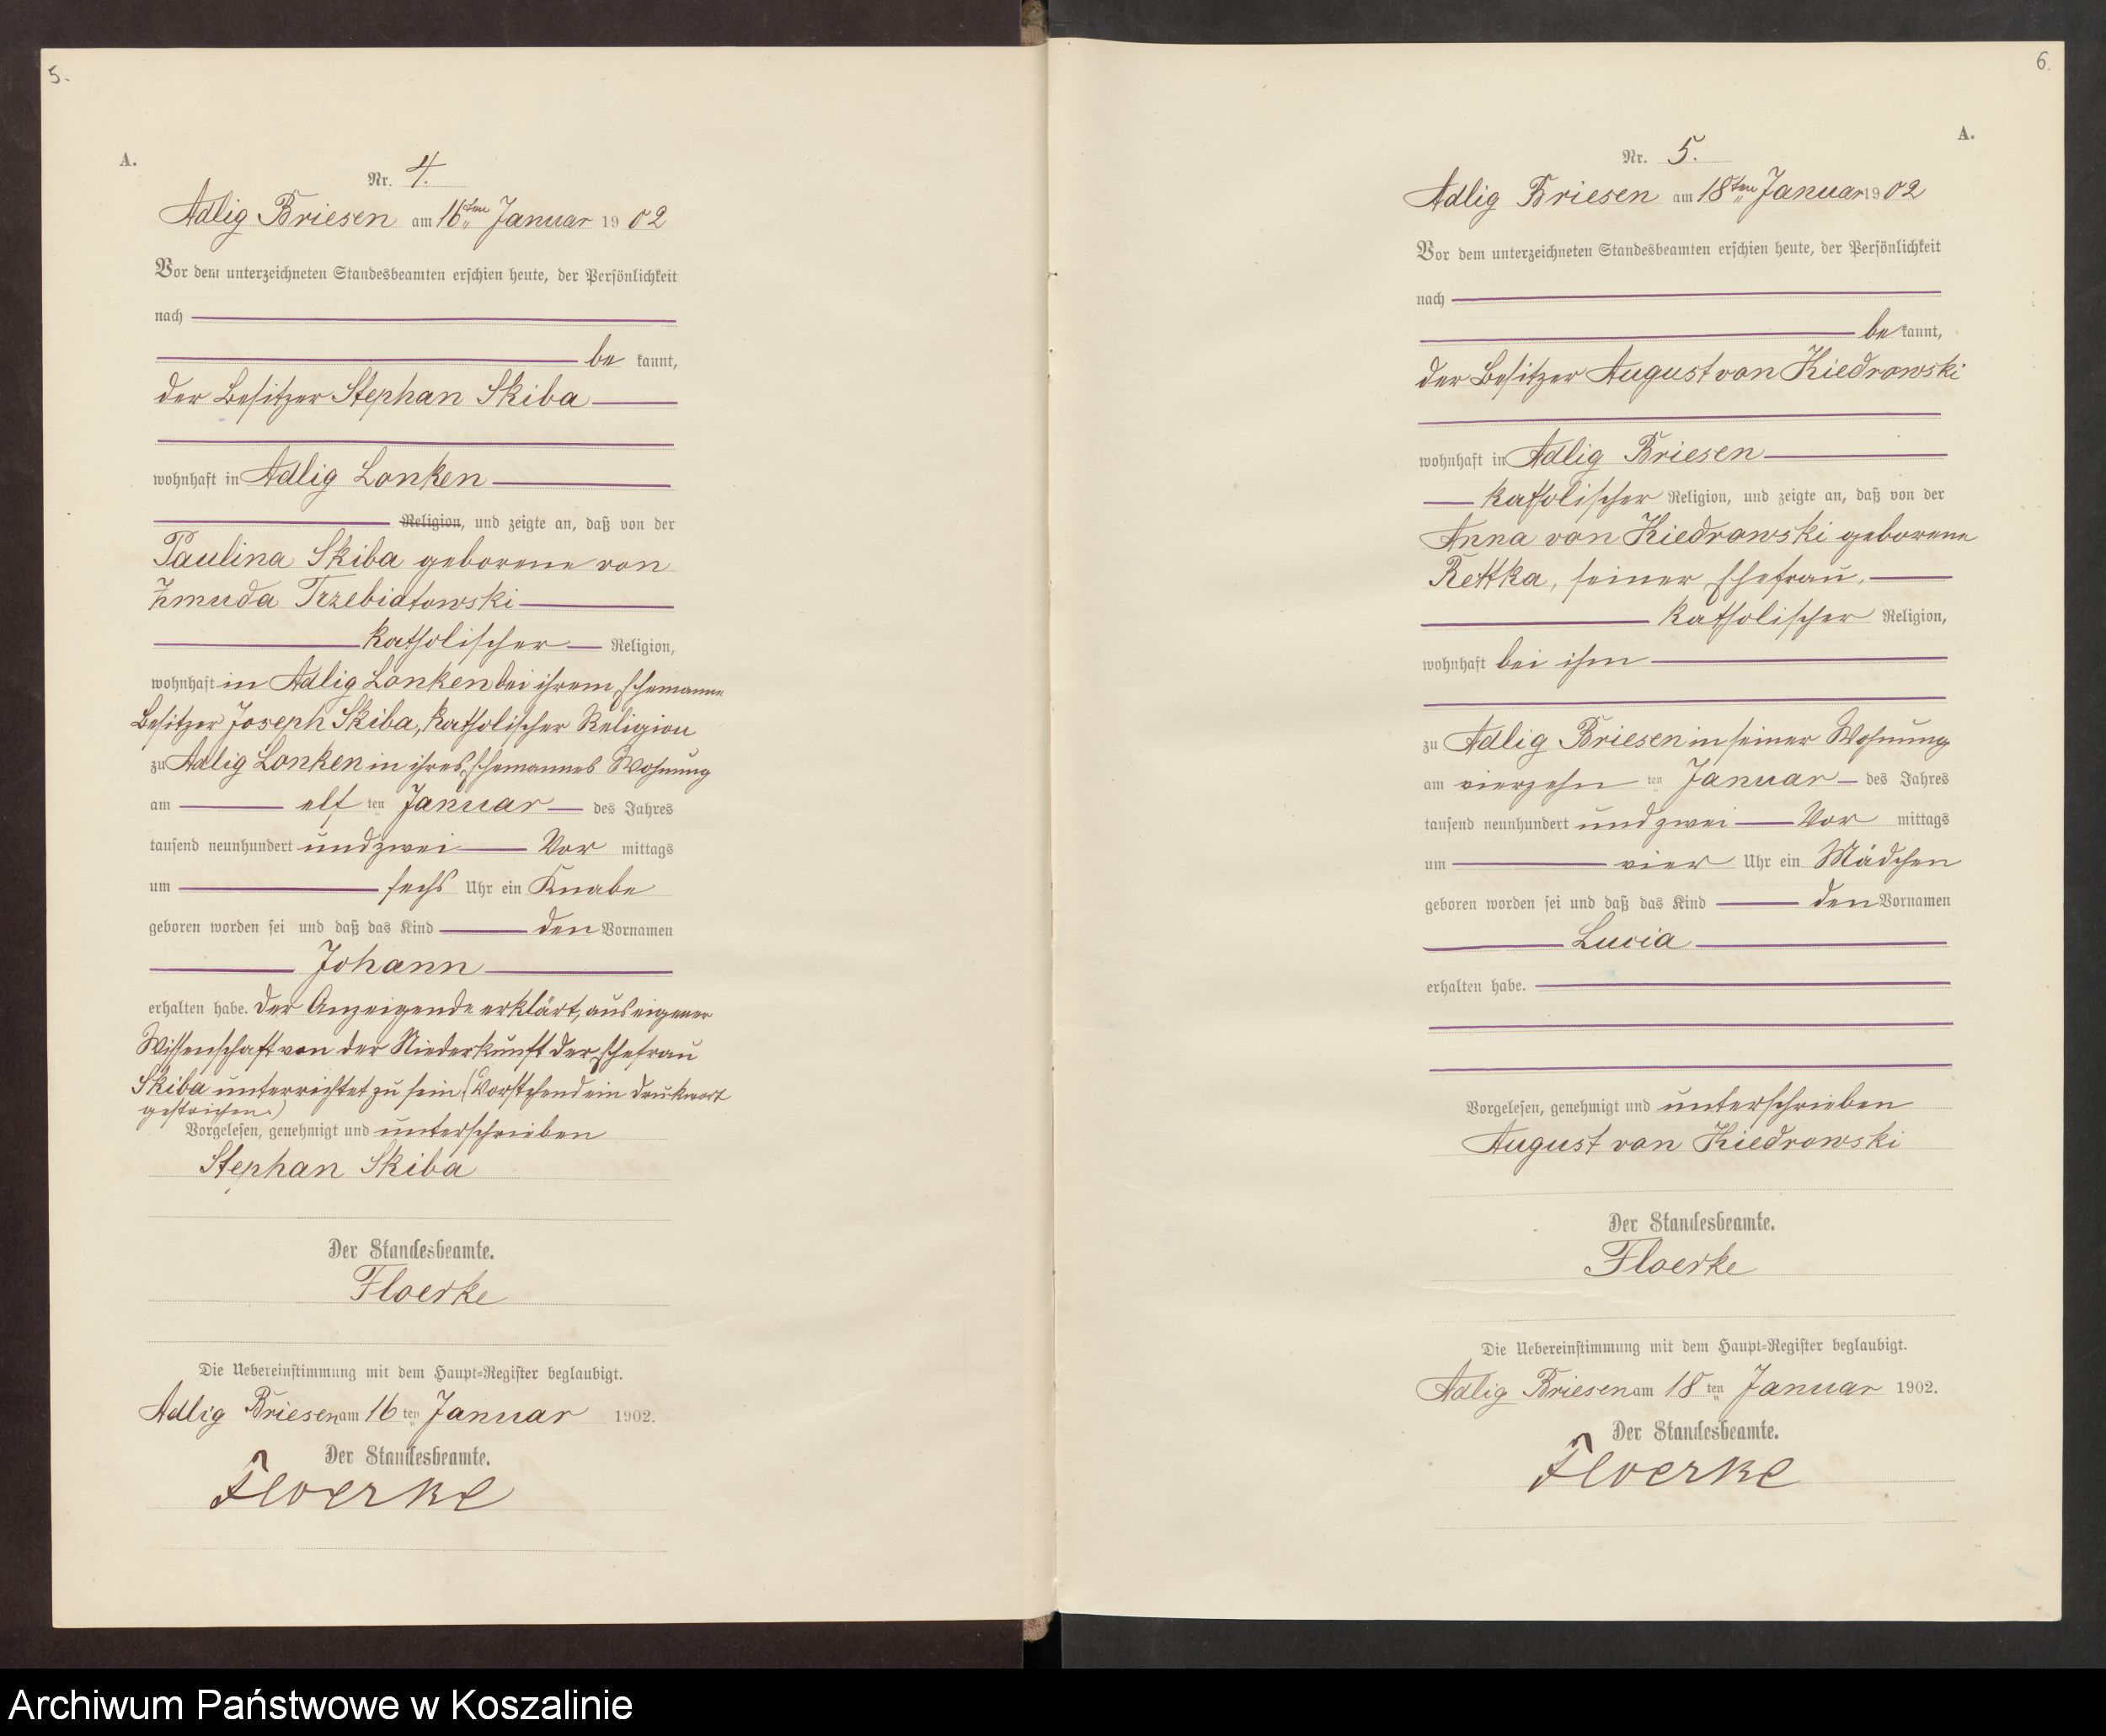 5.
A.
Nr. 4.
Adlig Briesen am 16ten Januar 1902
Vor dem unterzeichneten Standesbeamten erschien heute, der Persönlichkeit
nach
be kannt,
der Besitzer Stephan Skiba
wohnhaft in Adlig Lonken
Religion, und zeigte an, daß von der
Paulina Skiba geborene von
Zmuda Trzebiatowski
katholischer Religion,
wohnhaft in Adlig Lonken bei ihrem Ehemanne
Besitzer Joseph Skiba, katholischer Religion
zu Adlig Lonken in ihres Ehemannes Wohnung
am elf ten Januar des Jahres
tausend neunhundert und zwei Vor mittags
um sechs Uhr ein Knabe
geboren worden sei und daß das Kind den Vornamen
Johann
erhalten habe. Der Anzeigende erklärt, aus eigener
Wissenschaft von der Niederkunft der Ehefrau
Skiba unterrichtet zu sein. (Vorstehend ein Druckwort
gestrichen.)
Vorgelesen, genehmigt und unterschrieben
Stephan Skiba
Der Standesbeamte.
Floerke
Die Uebereinstimmung mit dem Haupt-Register beglaubigt.
Adlig Briesen am 16 ten Januar 1902.
Der Standesbeamte.
Floerke
6.
A.
Nr. 5.
Adlig Briesen am 18ten Januar 1902
Vor dem unterzeichneten Standesbeamten erschien heute, der Persönlichkeit
nach
be kannt,
der Besitzer August von Kiedrowski
wohnhaft in Adlig Briesen
katholischer Religion, und zeigte an, daß von der
Anna von Kiedrowski geborene
Rettka, seiner Ehefrau,
katholischer Religion,
wohnhaft bei ihm
zu Adlig Briesen in seiner Wohnung
am vierzehn ten Januar des Jahres
tausend neunhundert und zwei Vor mittags
um vier Uhr ein Mädchen
geboren worden sei und daß das Kind den Vornamen
Lucia
erhalten habe.
Vorgelesen, genehmigt und unterschrieben
August von Kiedrowski
Der Standesbeamte.
Floerke
Die Uebereinstimmung mit dem Haupt-Register beglaubigt.
Adlig Briesen am 18 ten Januar 1902.
Der Standesbeamte.
Floerke
Archiwum Państwowe w Koszalinie